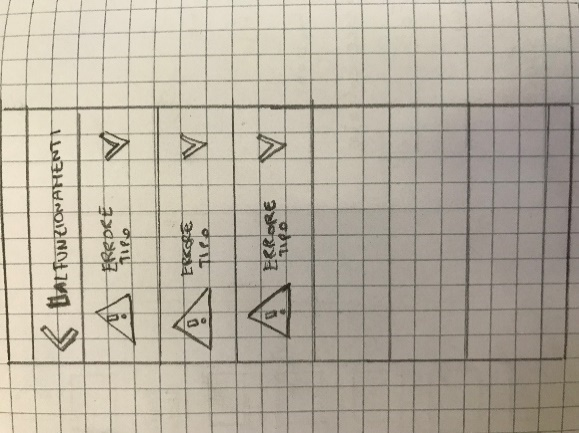 MALFUNZIONAMENTI
ERRORE
TIPO
ERRORE
TIPO
ERRORE
TIPO